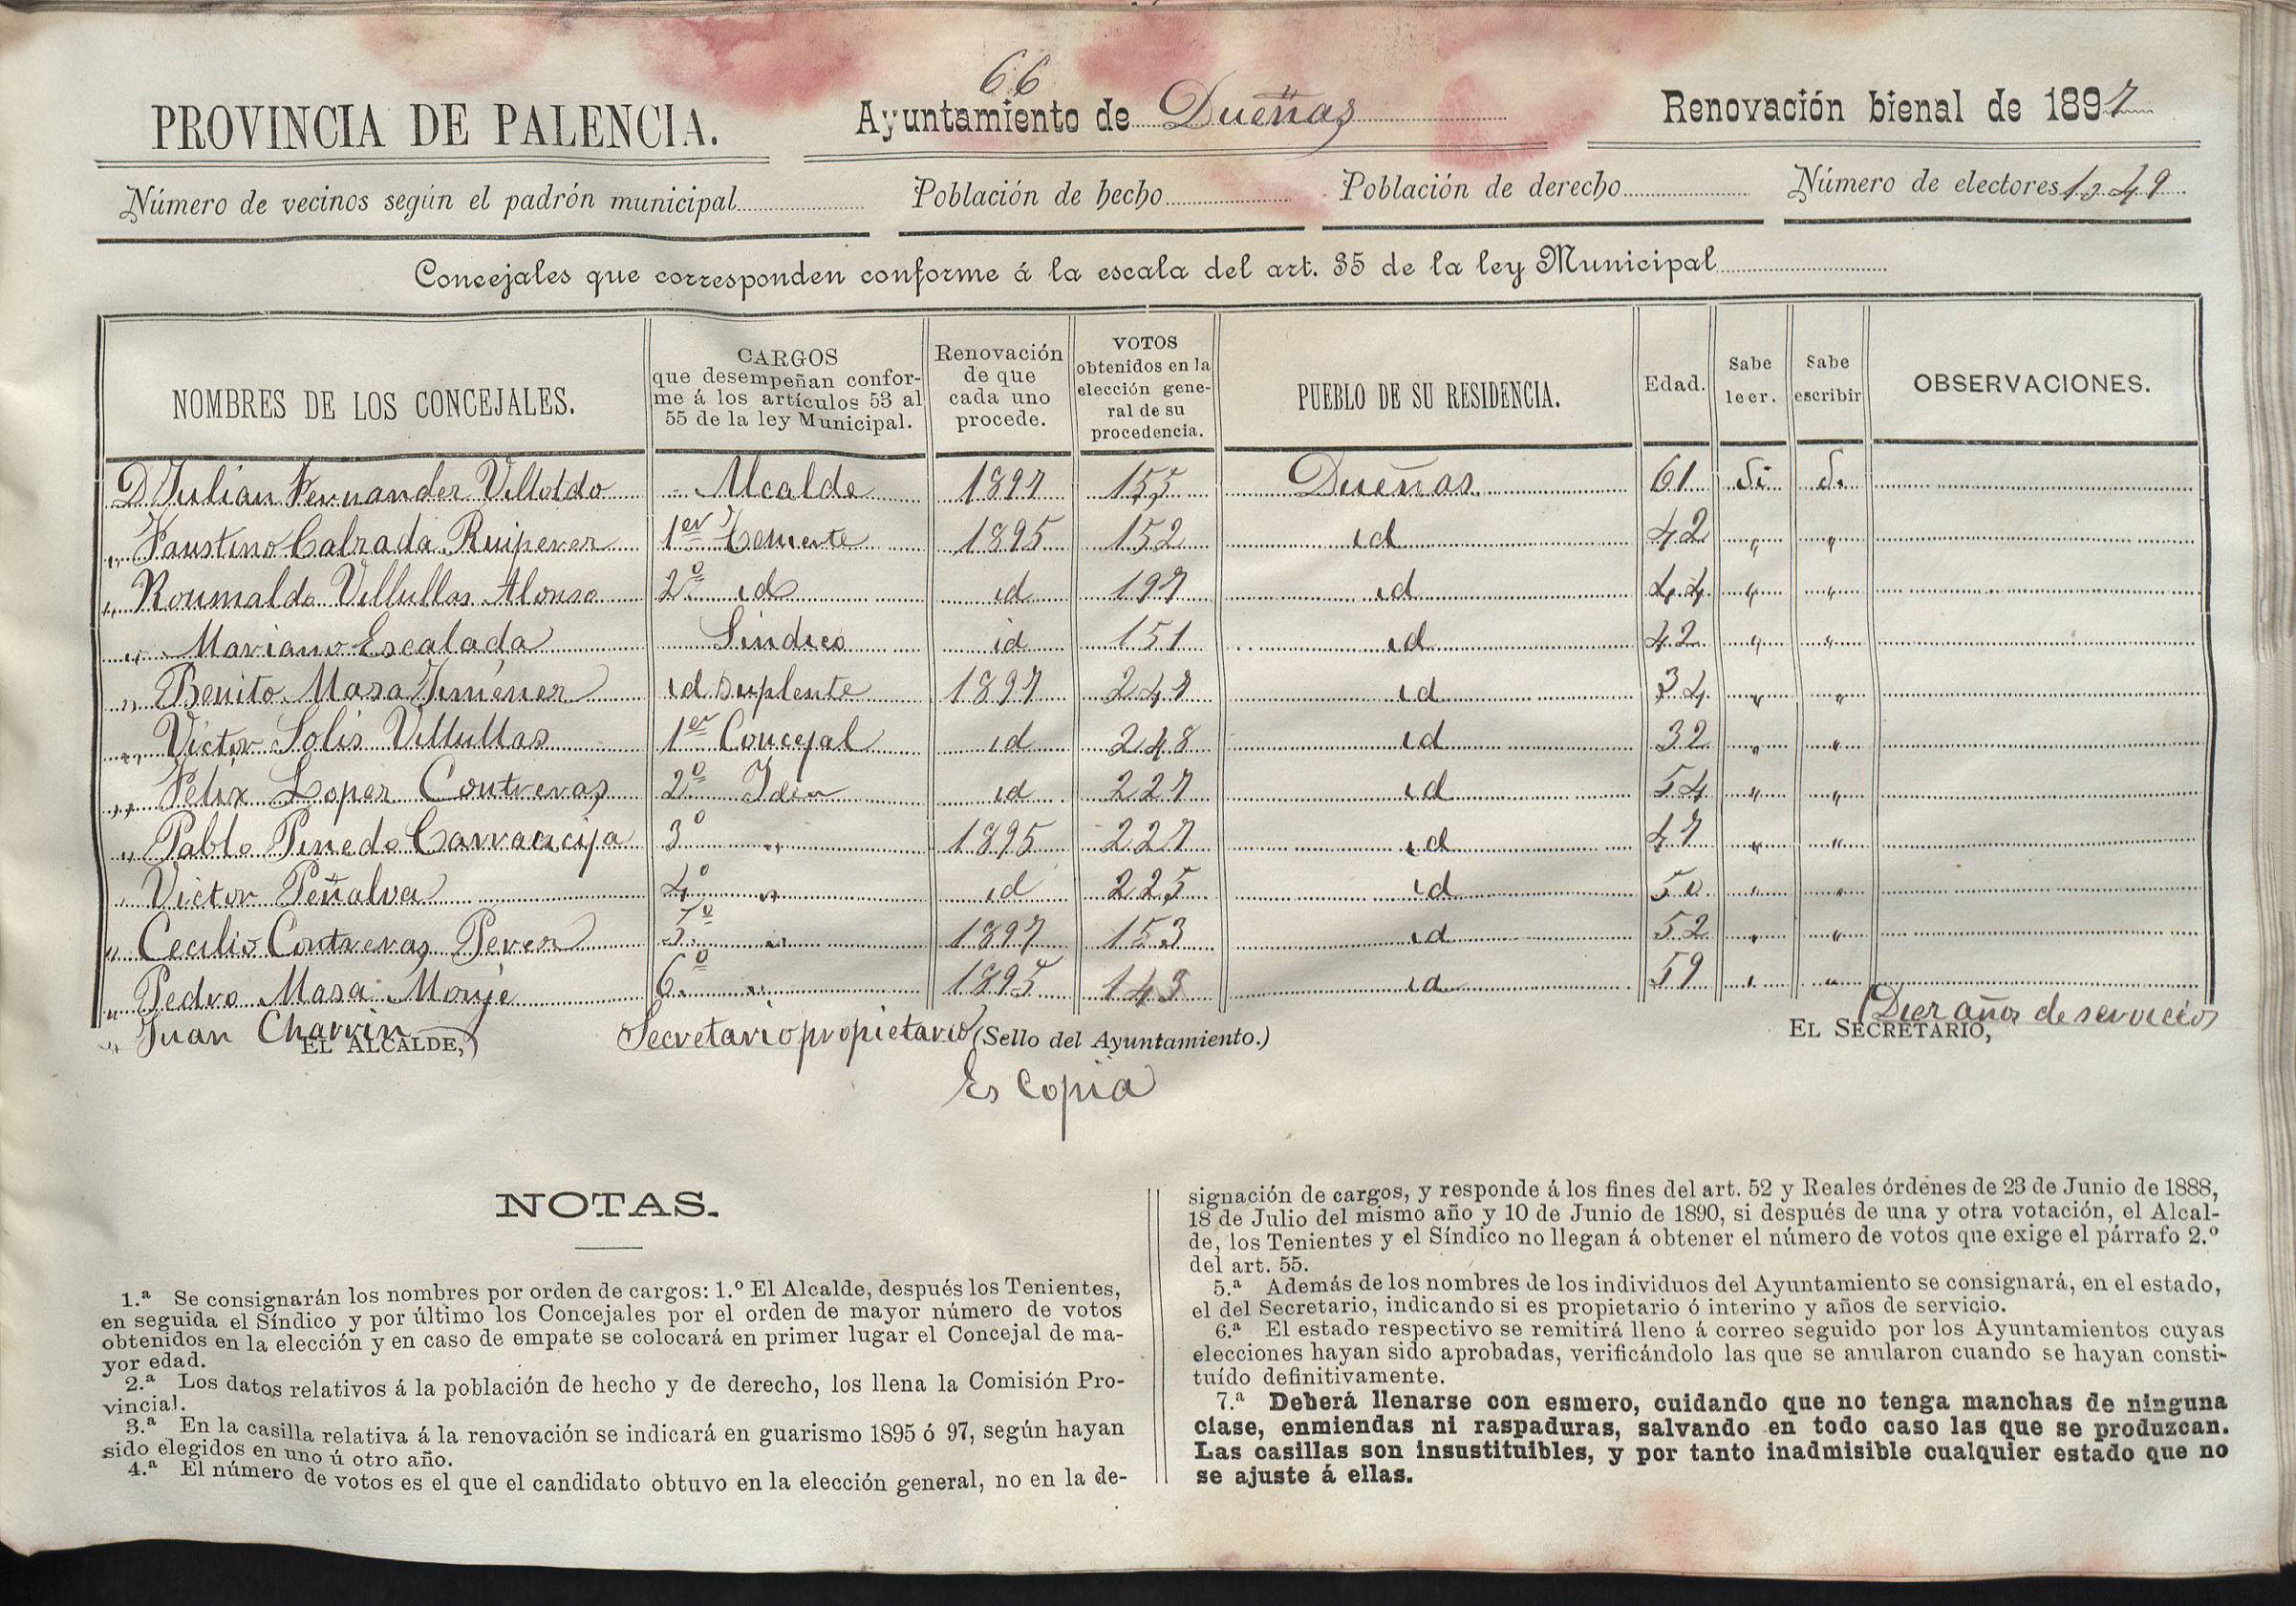 66
PROVINCIA DE PALENCIA. Ayuntamiento de Dueñas Renovación bienal de 1897
Número de vecinos según el padrón municipal Población de hecho Población de derecho Número de electores
Concejales que corresponden conforme á la escala del art. 35 de la ley Municipal
NOMBRES DE LOS CONCEJALES. CARGOS que desempeñan conforme á los artículos 53 al 55 de la ley Municipal. Renovación de que cada uno procede. VOTOS obtenidos en la elección general de su procedencia. PUEBLO DE SU RESIDENCIA. Edad. Sabe leer. Sabe escribir OBSERVACIONES.
D Julian Fernander Villoldo Alcalde 1897 155 Dueñas 61 Si Si
" Faustino Calzada Ruiperez 1er Teniente 1895 152 id 42 " "
" Roumaldo Villullas Alonso 2º id id 197 id 44 " "
" Mariano Escalada Sindico id 151 id 42 " "
" Benito Masa Jiménez id suplente 1897 247 id 34 " "
" Victor Solis Villullas 1er Concejal id 248 id 32 " "
" Félix Lopez Contreras 2º Idem id 227 id 54 " "
" Pablo Pinedo Carrancija 3º " 1895 227 id 47 " "
" Victor Peñalva 4º " id 225 id 50 " "
" Cecilio Contreras Perez 5º " 1897 153 id 52 " "
" Pedro Masa Monje 6º " 1895 143 id 59 " "
" Juan Charrin Secretario propietario Diez años de servicios
EL ALCALDE, (Sello del Ayuntamiento.) EL SECRETARIO,
Es Copia
NOTAS.
1.ª Se consignarán los nombres por orden de cargos: 1.º El Alcalde, después los Tenientes,
en seguida el Síndico y por último los Concejales por el orden de mayor número de votos
obtenidos en la elección y en caso de empate se colocará en primer lugar el Concejal de ma-
yor edad.
2.ª Los datos relativos á la población de hecho y de derecho, los llena la Comisión Pro-
vincial.
3.ª En la casilla relativa á la renovación se indicará en guarismo 1895 ó 97, según hayan
sido elegidos en uno ú otro año.
4.ª El número de votos es el que el candidato obtuvo en la elección general, no en la de-
signación de cargos, y responde á los fines del art. 52 y Reales órdenes de 23 de Junio de 1888,
18 de Julio del mismo año y 10 de Junio de 1890, si después de una y otra votación, el Alcal-
de, los Tenientes y el Síndico no llegan á obtener el número de votos que exige el párrafo 2.º
del art. 55.
5.ª Además de los nombres de los individuos del Ayuntamiento se consignará, en el estado,
el del Secretario, indicando si es propietario ó interino y años de servicio.
6.ª El estado respectivo se remitirá lleno á correo seguido por los Ayuntamientos cuyas
elecciones hayan sido aprobadas, verificándolo las que se anularon cuando se hayan consti-
tuído definitivamente.
7.ª Deberá llenarse con esmero, cuidando que no tenga manchas de ninguna
clase, enmiendas ni raspaduras, salvando en todo caso las que se produzcan.
Las casillas son insustituibles, y por tanto inadmisible cualquier estado que no
se ajuste á ellas.